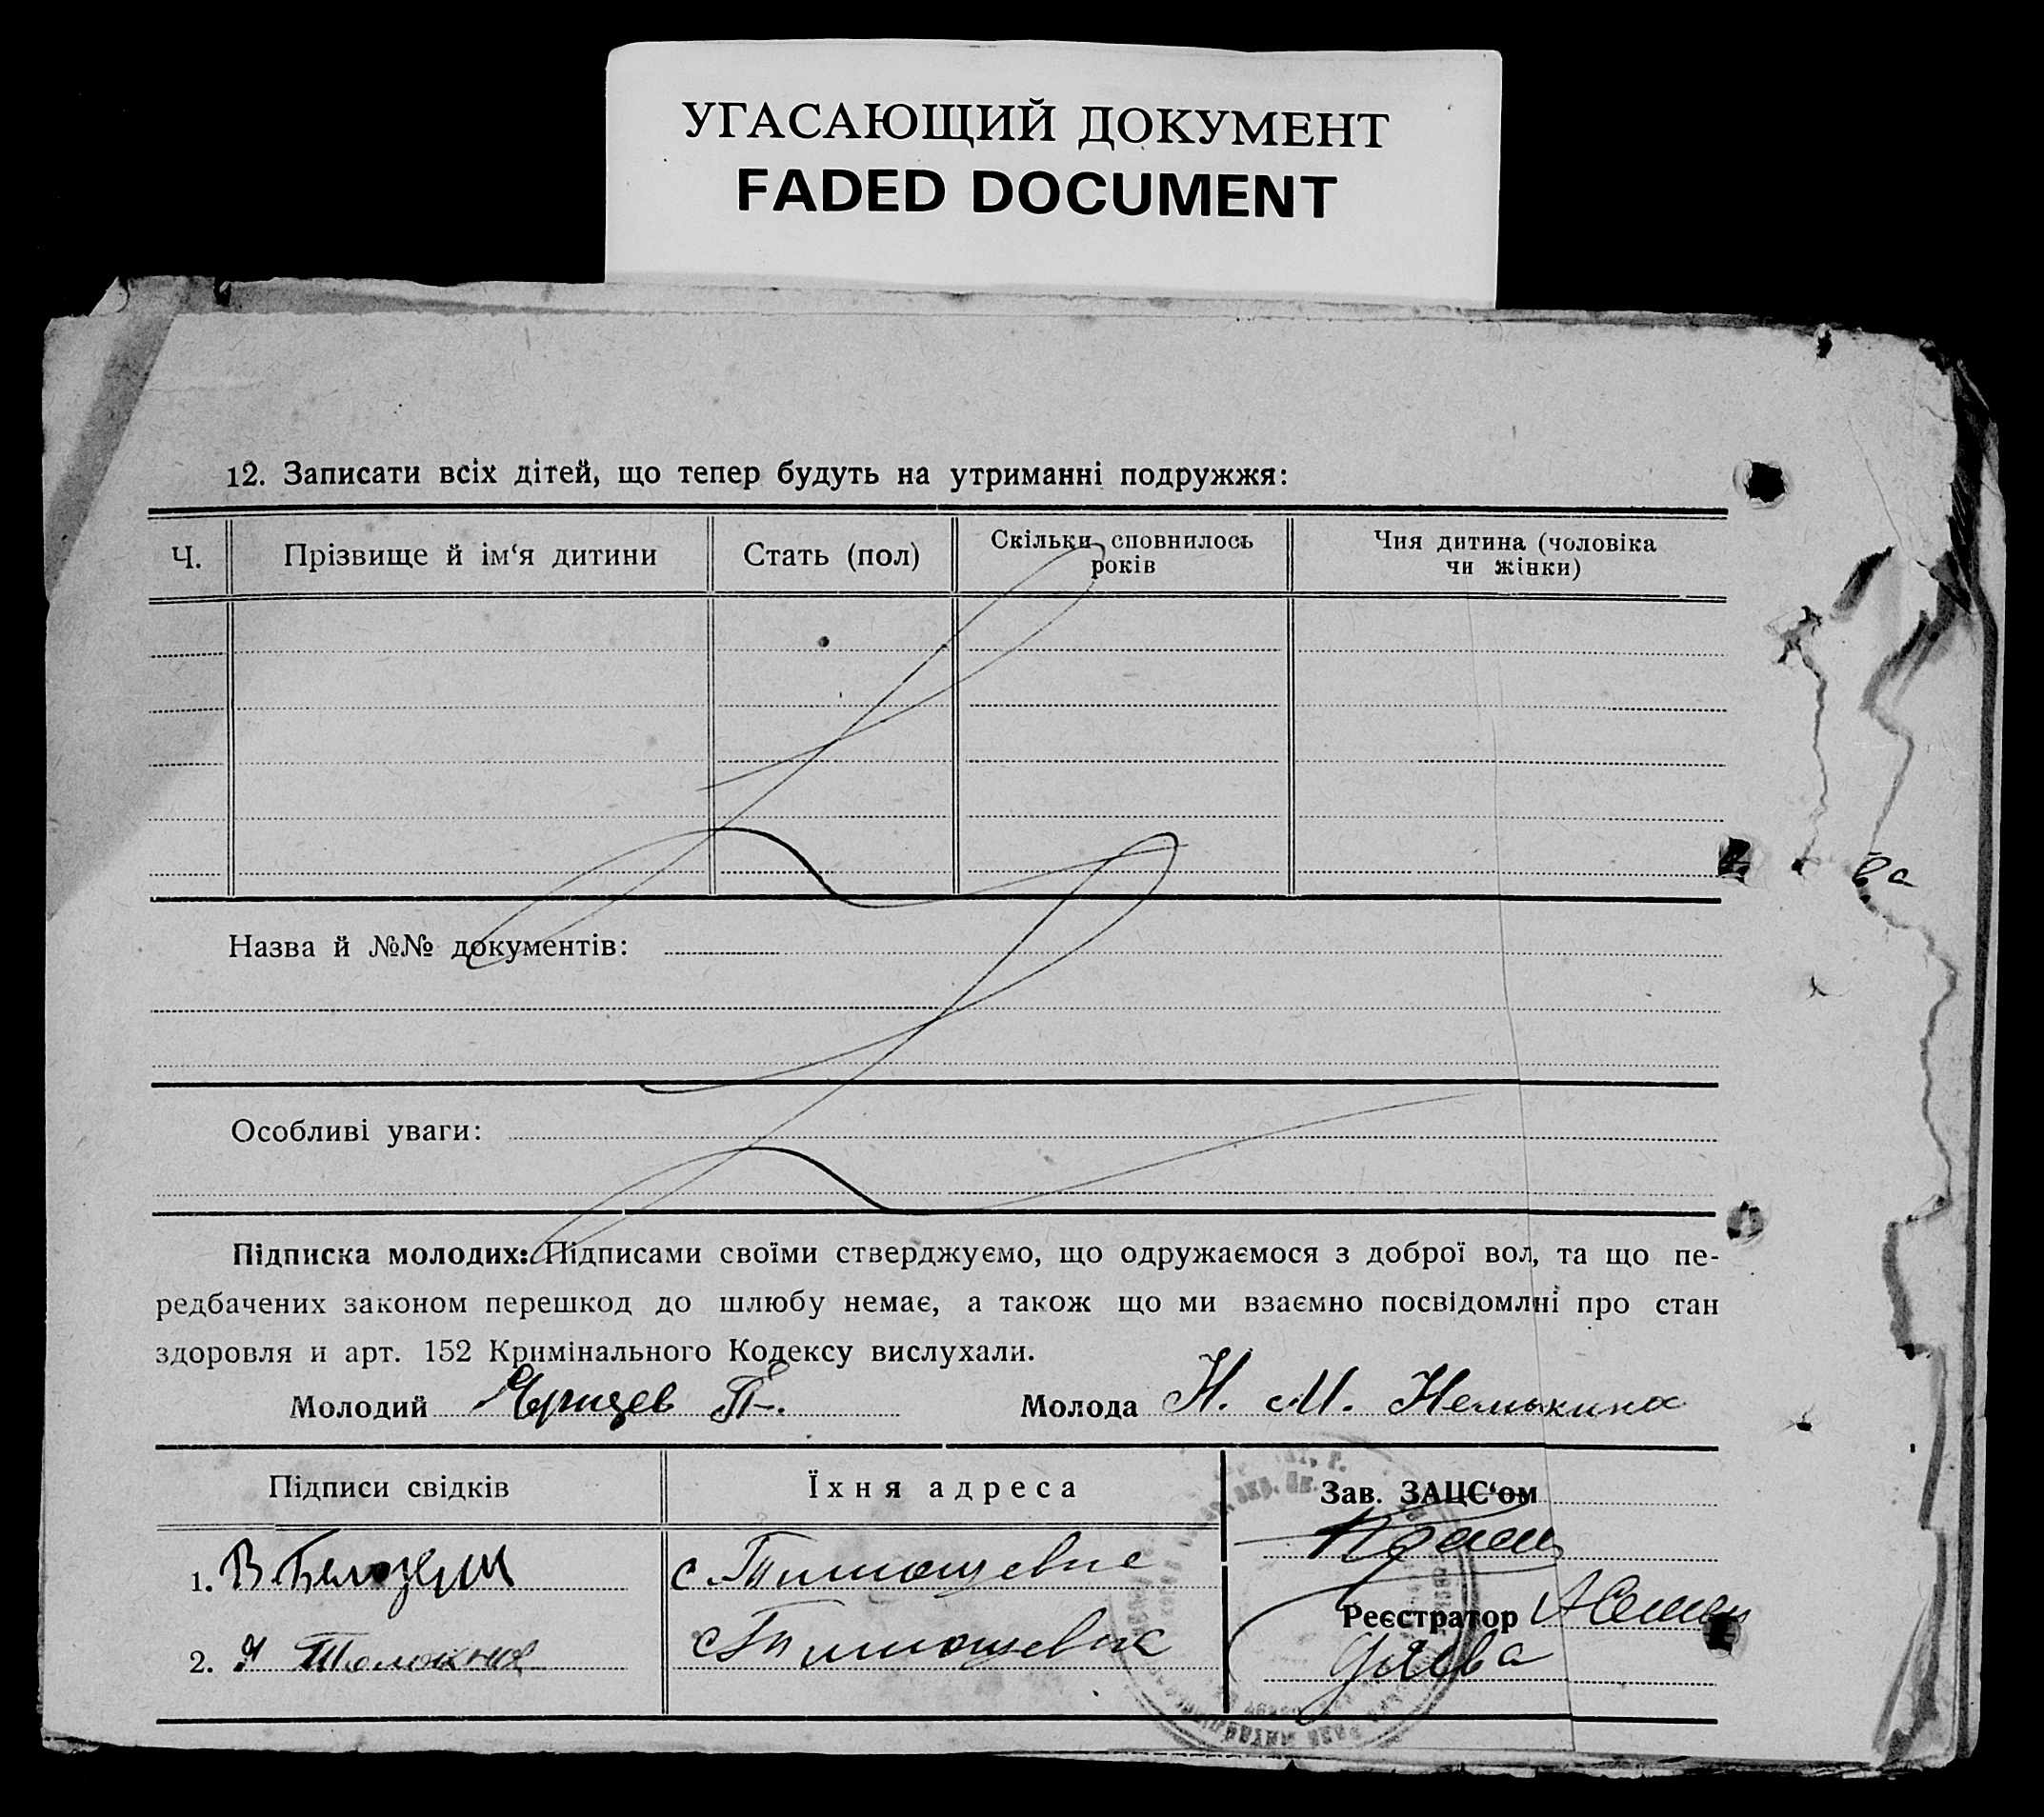 УГАСАЮЩИЙ ДОКУМЕНТ
FADED DOCUMENT
12. Записати всіх дітей, що тепер будуть на утриманні подружжя:
Ч.
Прізвище й ім‘я дитини
Стать (пол)
Скільки сповнилось
років
Чия дитина (чоловіка
чи жінки)
ва
Назва й №№ документів:
Особливі уваги:
Підписка молодих: Підписами своїми стверджуємо, що одружаємося з доброї вол, та що пе-
редбачених законом перешкод до шлюбу немає, а також що ми взаємно посвідомлні про стан
здоровля и арт. 152 Кримінального Кодексу вислухали.
Молодий П. Молода Н. М. Немыкина
Підписи свідків
Їхня адреса
Зав. ЗАЦС‘ом
1. В.
с.
2.
с.
Реєстратор